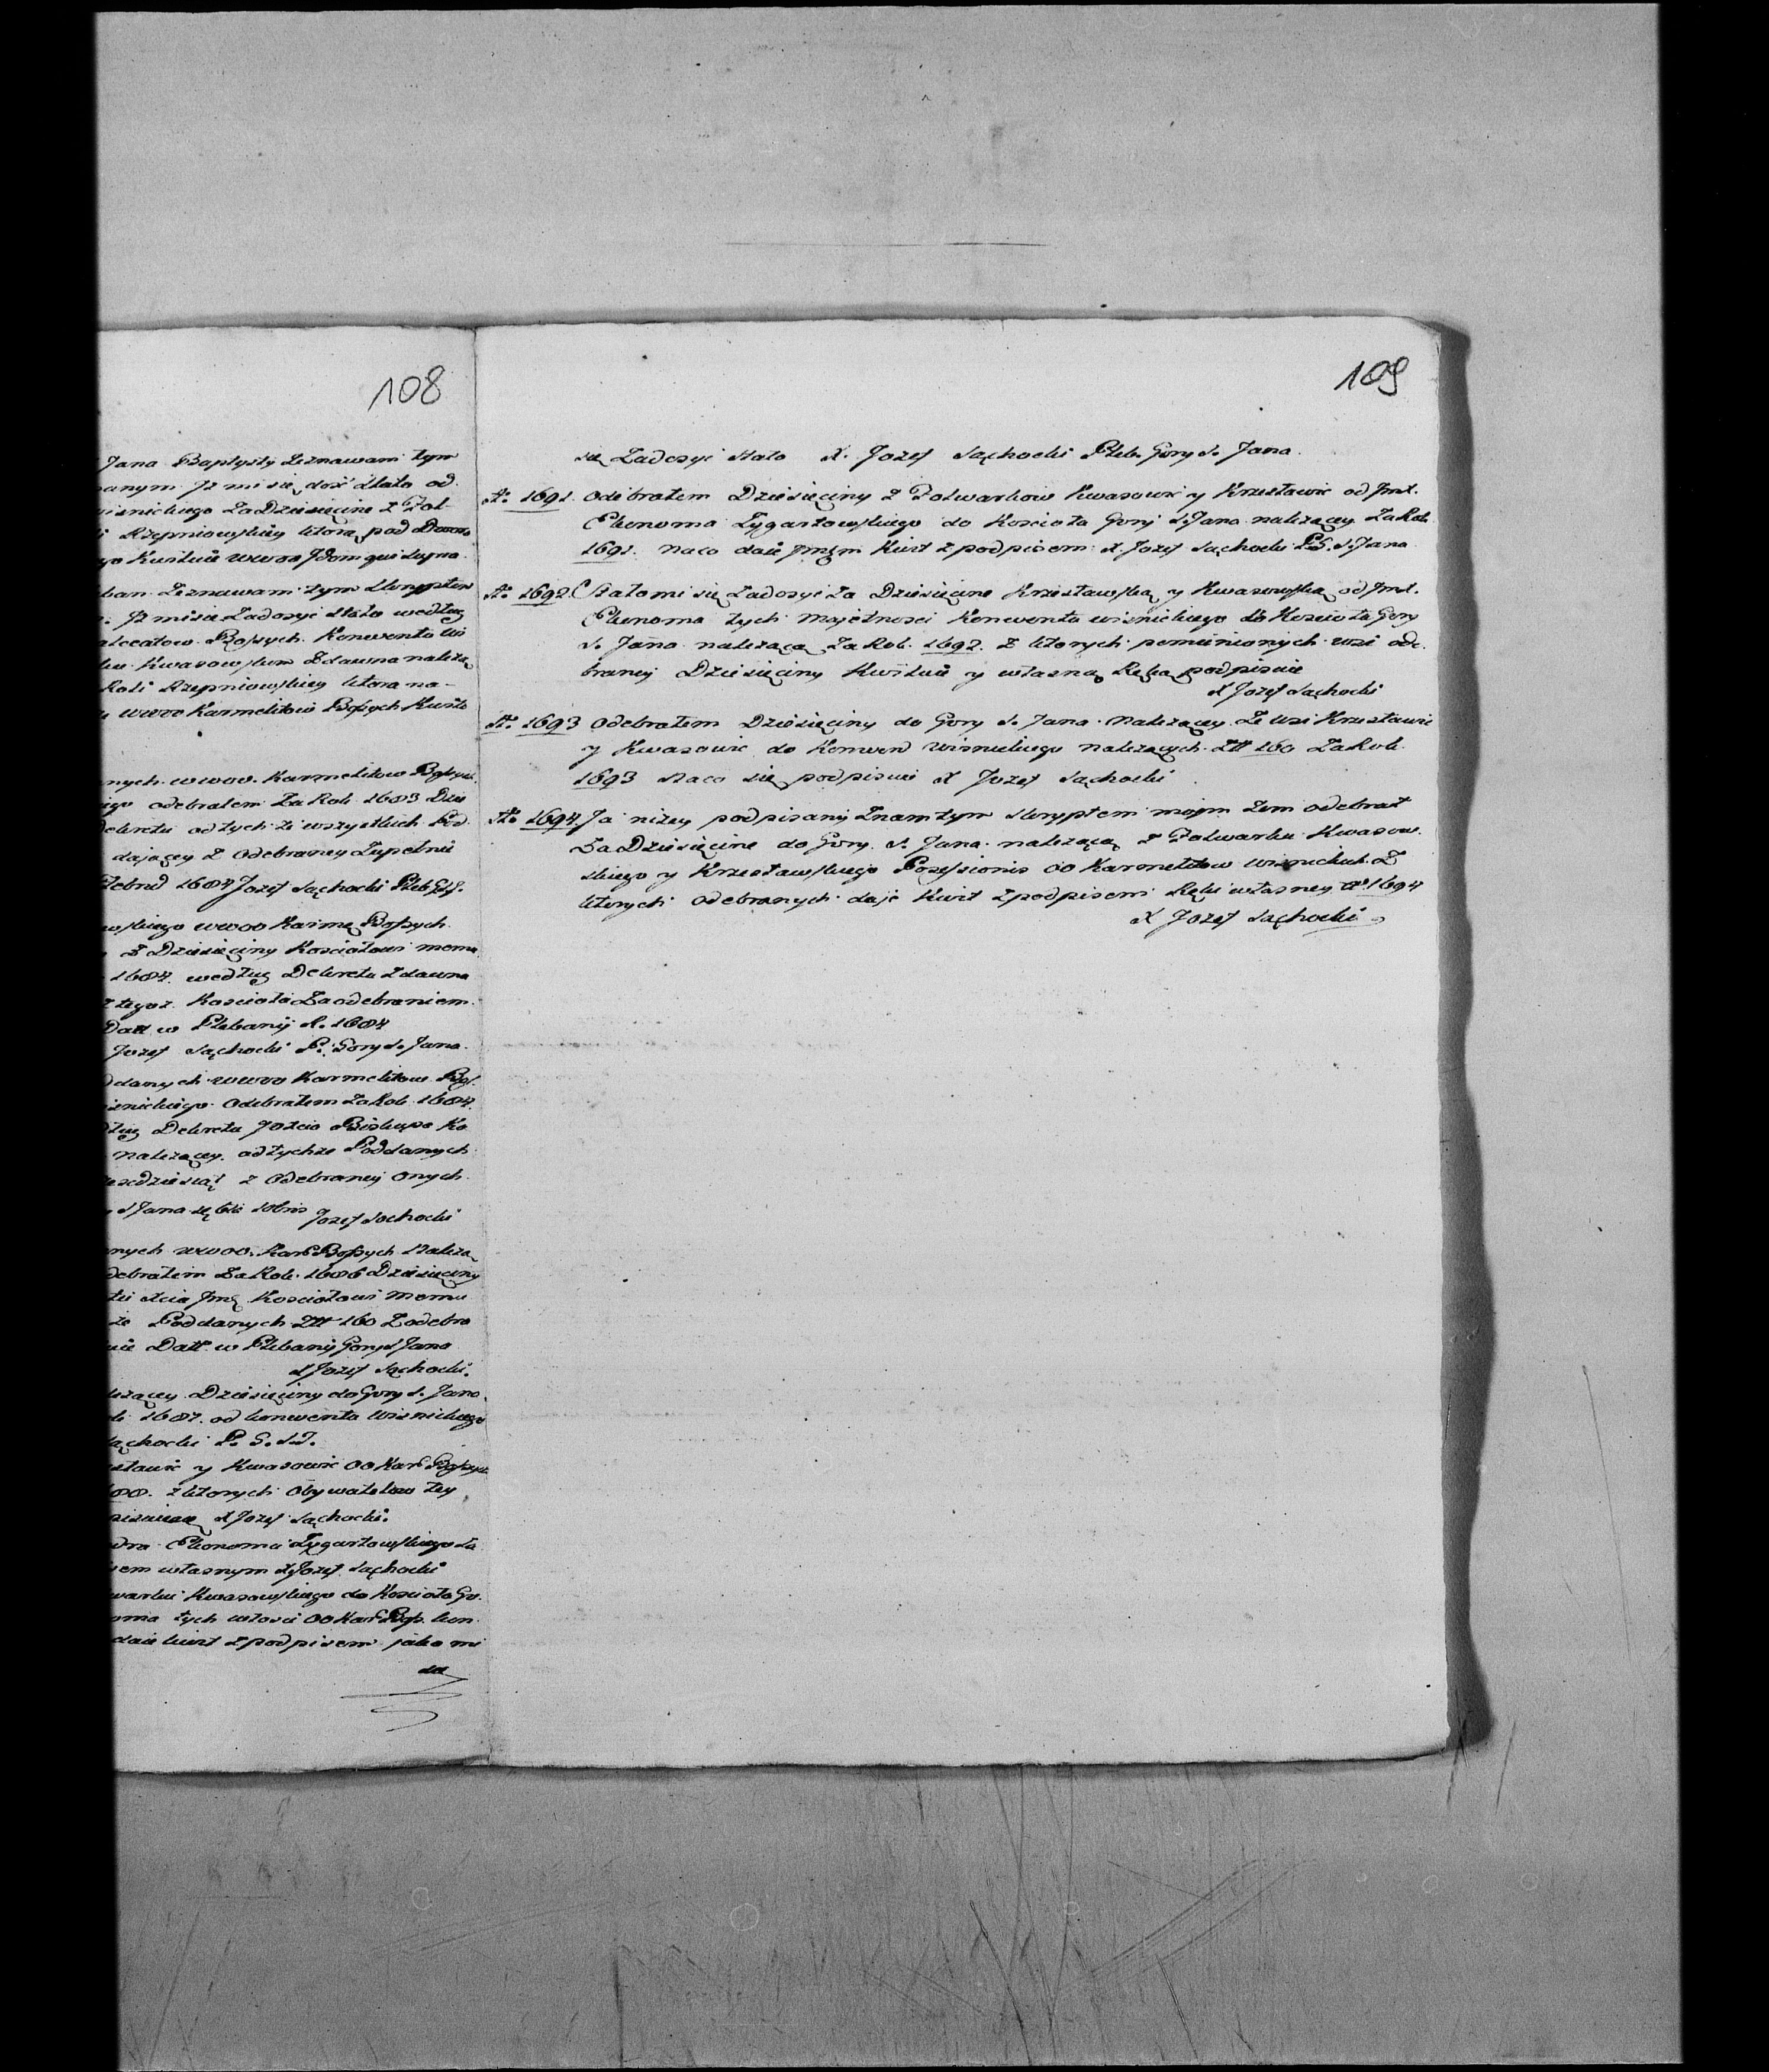 108
Jana Baptysty Zeznawam tym
anym Jż mi się dość Stało od
nickiego Za Dziesięcine z Fol-
Rzepniowskiey ktora pod
Kwituie wwoo Jdom qui supra.
ban Zeznawam tym Skryptem
Jż mi sie Zadosyc Stało według
Bossych Konwentu Wi
Kwasowskim Zdawna należą
Roli Rzepniowskiey ktora na-
wwoo Karmelitow Bossych Kwit
nych wwoo. Karmelitow Bossych
odebratem Za Rok 1683 Dzie
Dekretu od tych że wszystkich Pod
dającey z Odebraney Zupełnie
Febru 1684 Jozef Sąchocki Pleb GSJ.
skiego wwoo Karme Bossych
z Dziesięciny Kosciołowi memu
1684. według Dekretu Zdawna
z tegoż Kościoła Za odebraniem
Datt w Plebanij A. 1684
Jozef Sąchocki P. Gory S. Jana.
danych wwoo Karmelitow Bos.
snickiego Odebratem Za Rok 1684.
Dług Dekretu Jozcia Biskupa Ko
należącey od tychże Poddanych
dziesiąt z Odebraney Onych
S Jana Jozef Sochocki
nych wwoo. Kar Bossych Należą
debratem Za Rok 1686 Dziesięciny
Xcia Jmę Kosciołowi memu
że Poddanych Ztt 160 Z odebra
Datt w Plebanij Gory S Jana
X Jozef Sąchocki.
leżącey Dziesięciny do Gory S. Jana
1687. od konwentu Wisnickiego
ąchocki P. G. S. J.
sławic y Kwasowic OO Kar Bossych
z ktorych Obywatelow tey
X Jozef Sąchocki.
Ekonoma Zygartowskiego Za
sem własnym X Jozef Sąchocki
warku Kwasowskiego do Kościoła Go.
oma tych włosci OO Kar Boss. kon
daie kwit z podpisem jako mi
się
109
się Zadosyć Stało X. Jozef Sąchocki Pleb. Gory S. Jana.
Ao 1691. Odebratem Dziesięciny z Folwarkow Kwasowic y Krzesławic od Jmć.
Ekonoma Zygartowskiego do Kościoła Gory S. Jana należącey Za Rok
1691. Na co daie Jmęm Kwit z podpisem X. Jozef Sąchocki P.G. S. Jana
Ao 1692. Stało mi się Zadosyć Za Dziesięcine Krzesławską y Kwasowską od Jmć.
Ekonoma tych Majętnosci Konwentu wisnickiego do Kościoła Gory
S. Jana należącą Za Rok. 1692. z ktorych pomienionych wsi ode-
braney Dziesięciny Kwituie y własną Ręką podpisuie
X Jozef Sąchocki
Ao 1693 Odebratem Dziesięciny do Gory S. Jana należącey Ze wsi Krzesławic
y Kwasowic do Konwen Wisnickiego należących Ztt 160 Za Rok
1693 Na co się podpisuie X Jozef Sąchocki
Ao 1694. Ja niżey podpisany Znam tym Skryptem moim żem odebrał
Za Dziesięcine do Gory S. Jana należącą z Folwarku Kwasow-
skiego y Krzesławskiego Possessionis OO Karmelitow Wisnickich. Z
ktorych odebranych daję Kwit z podpisem Ręki własney Ao 1694
X Jozef Sąchocki